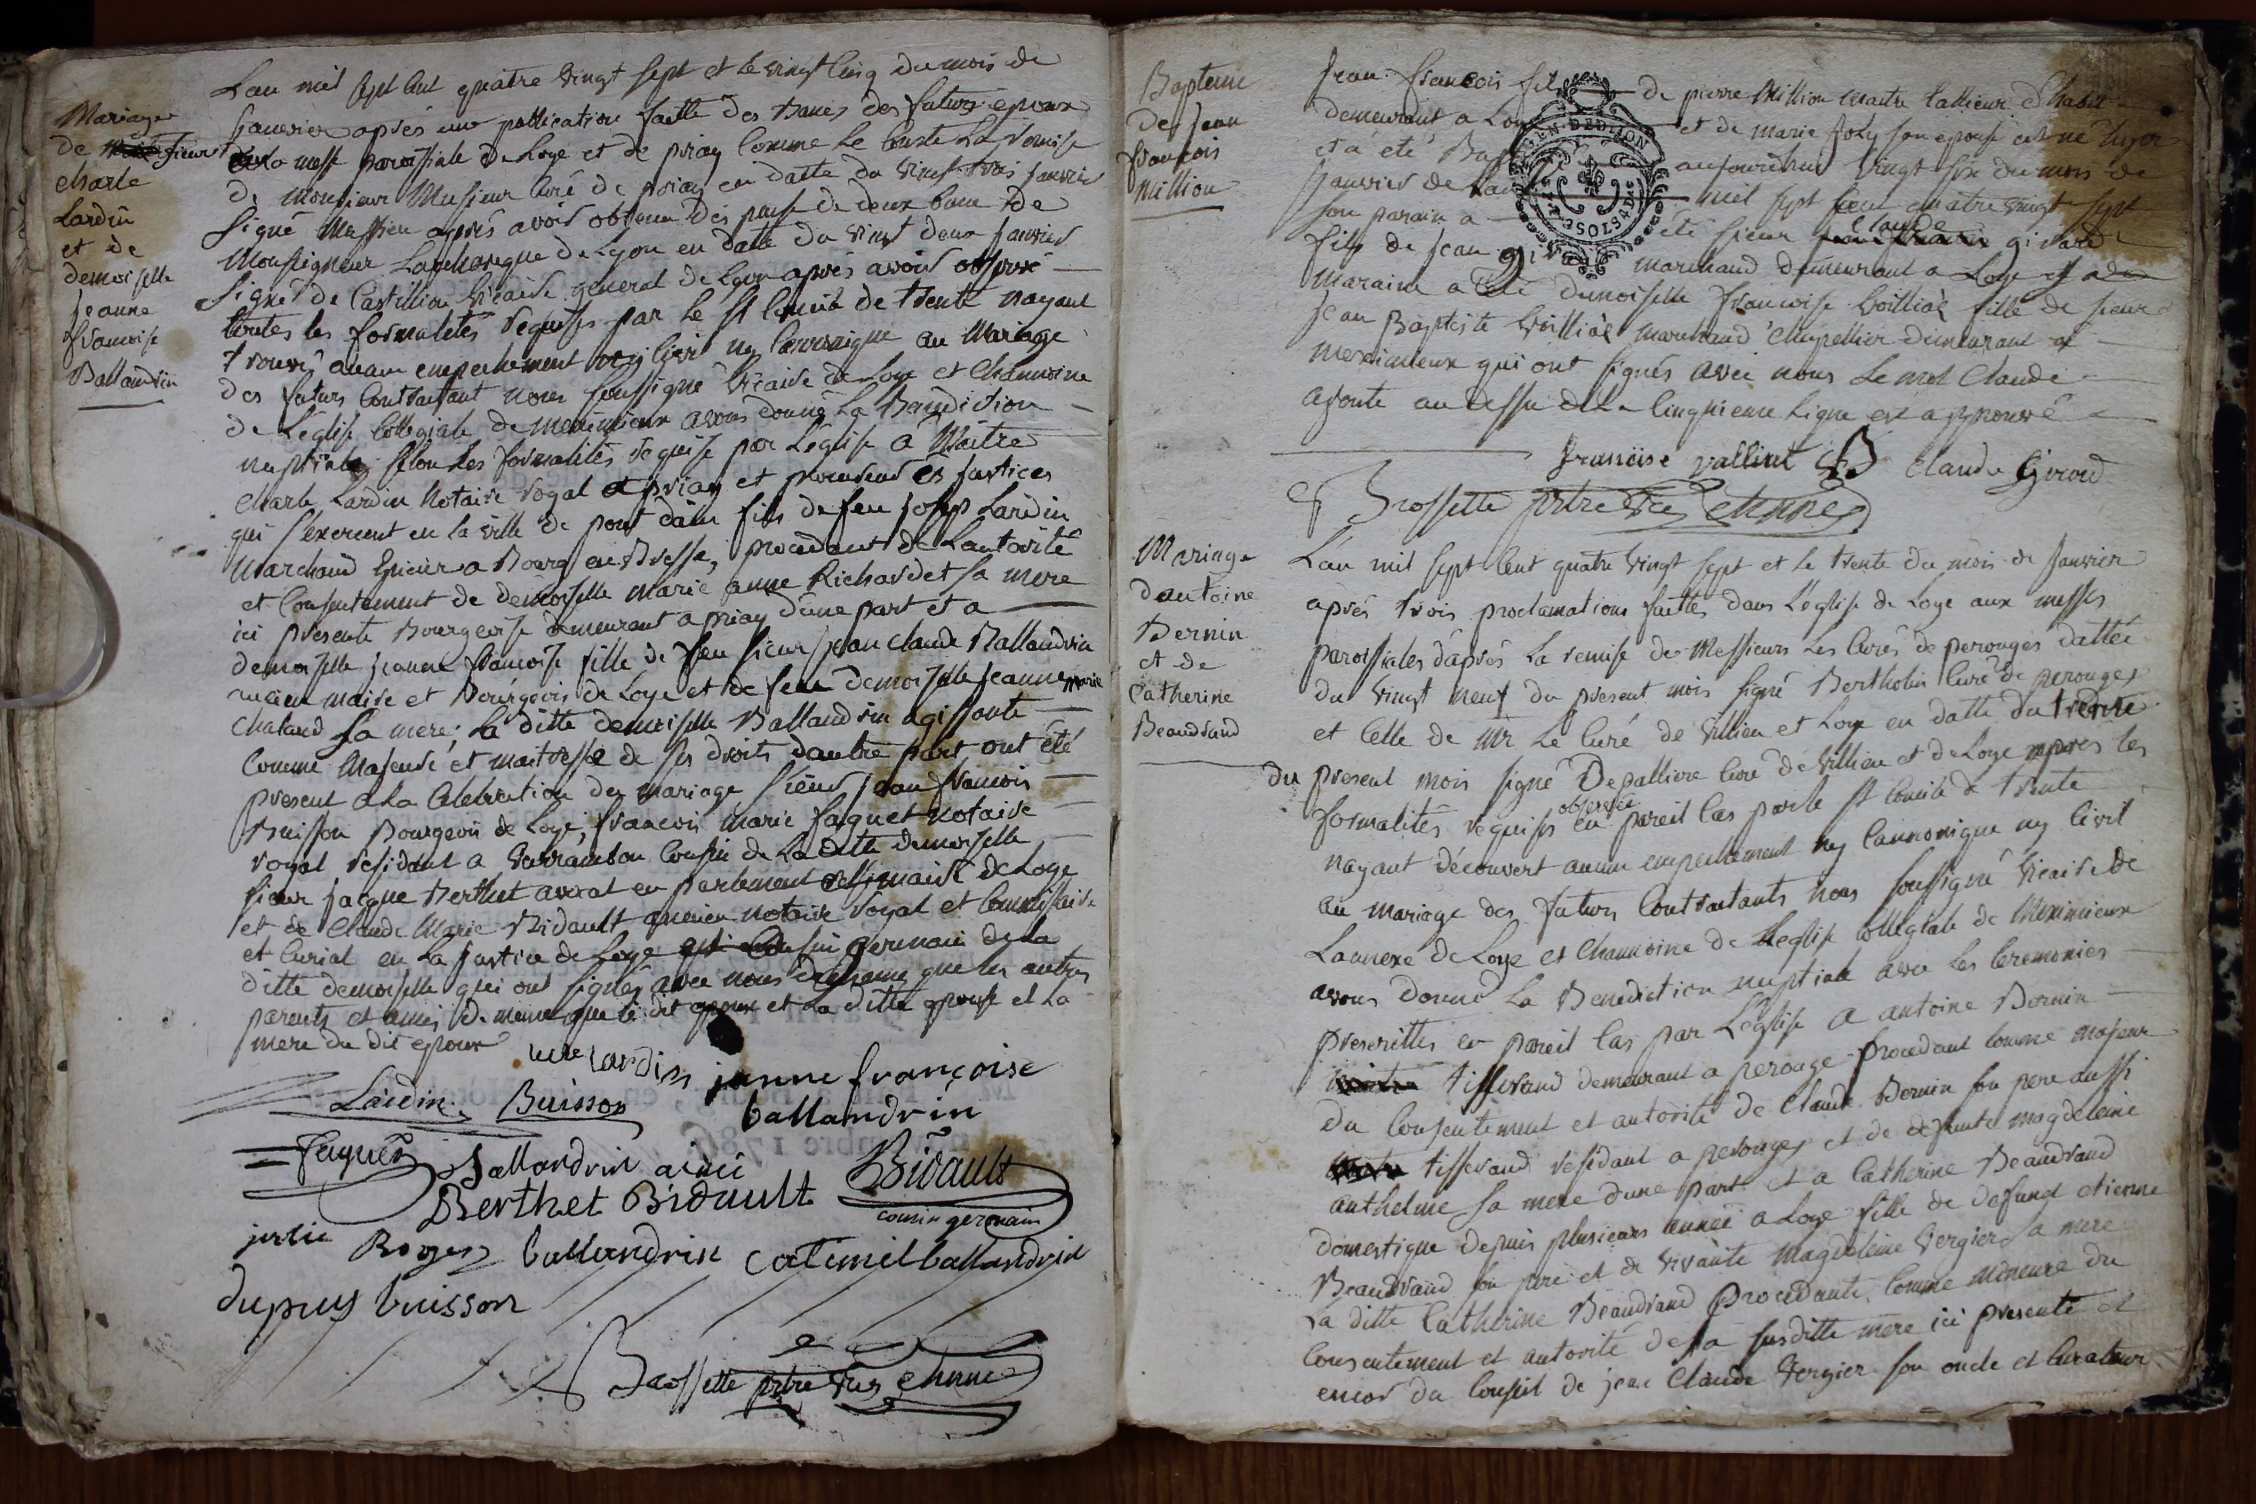 Mariage
de sieur
charle
Lardin
et de
demoiselle
jeanne
francoise
Ballandrin
Lan mil sept cent quatre vingt sept et le vingt cinq du mois de
janvier après une publication faitte des bancs des futurs epoux
a la messe paroissiale de Loye et de priay comme le conste La remise
de Monsieur Messieur curé de priay en datte du vingt trois janvier
signé Messieu après avoir obtenu dispense de deux bans de
Monseigneur Larcheveque de Lyon en datte du vingt deux janvier
signé de Castillion vicaire general de Lyon après avoir observé
toutes les formalités requises par le st concile de trente nayant
trouvé aucun empechement ny civil ny cannonique au Mariage
des futurs contractant nous soussigné vicaire de Loye et chanoine
de L'église collegiale de meximieux avons donné La Benediction
nuptiale selon les formalités requise par L'église a Maitre
charle Lardin Notaire royal a priay et procureur es justices
qui s'exercent en la ville de pont dain fils de feu joseph Lardin
Marchand Epicier a Bourg en Bresse, procedant de Lautorité
et consentement de demoiselle marie anne Richardet sa mere
ici presente Bourgeoise demeurant a priay d'une part et a
demoiselle jeanne francoise fille de feu sieur jean claude Ballandrin
ancien maire et Bourgeois de Loye et de feue demoiselle jeanne marie
chatard sa mere, La ditte demoiselle Ballandrin agissante
comme Majeure et maitresse de ses droits dautre part ont été
present a La celebration du mariage sieur jean francois
Buisson Bourgeois de Loye, francois marie faguet notaire
royal residant a varambon cousin de La ditte demoiselle
sieur jacque Berthet avocat en parlement maire de Loye
et de Claude Marie Bidault ancien notaire royal et commissaire
et curial en La justice de Loye cousin germain de La
ditte demoiselle qui ont signés avec nous que les autres
parents et amis de meme que le dit epoux et La ditte epouse et La
mere du dit epoux
Lardin jeanne françoise
Lardin Buisson ballandrin
faguet Ballandrin ainé Bidault
Berthet Bidault cousin germain
Royer ballandrin ballandrin
dupuy buisson
Brossette prtre vic chne
Bapteme
de jean
francois
Million
jean francois fils de pierre Million maitre tallieur d'habit
demeurant a Loye et de marie joly son epouse est né hyer
et a été aujourdhui vingt six du mois de
janvier de Lan mil sept cent quatre vingt sept
son parain a été sieur claude girard
fils de jean marchand demeurant a Loye
maraine a été demoiselle francoise vailliat fille de sieur
jean Baptiste vailliat marchand chapellier demeurant a
meximieux qui ont signés avec nous Le mot claude
ajouté au dessu de La cinquieme Ligne est approuvé
françise valliat Claude Girord
Brossette prtre vic chne
Mariage
dantoine
Bernin
et de
Catherine
Beaudrand
L'an mil sept cent quatre vingt sept et le trente du mois de janvier
après trois proclamations faittes dans L'église de Loye aux messes
paroissiales d'après La remise de Messieurs Les curés de perouges dattée
du vingt neuf du present mois signé Bertholin curé de perouges
et celle de Mr Le curé de villieu et Loye en datte du trente
du present mois signé Depalliere curé de villieu et de Loye apres les
formalités requises observées en pareil cas par le st concile de trente
nayant découvert aucun empechement ny cannonique ny civil
au mariage des futurs contractants nous soussigné vicaire de
Lannexe de Loye et chanoine de L'eglise collegiale de Meximieux
avons donné La Benediction nuptiale avec Les ceremonies
prescrittes en pareil cas par L'eglise a antoine Bernin
tisserand demeurant a perouge procedant comme majeur
du consentement et autorité de claude Bernin son pere aussi
tisserand residant a perouges et de defunte magdeleine
anthelme sa mere dune part et a catherine Beaudrand
domestique depuis plusieurs année a Loye fille de defunct etienne
Beaudrand son pere et de vivante magdeleine vergier sa mere
La ditte Catherine Beaudrand procedante comme mineure du
consentement et autorité de sa susditte mere ici presente et
encor du conseil de jean claude vergier son oncle et curateur